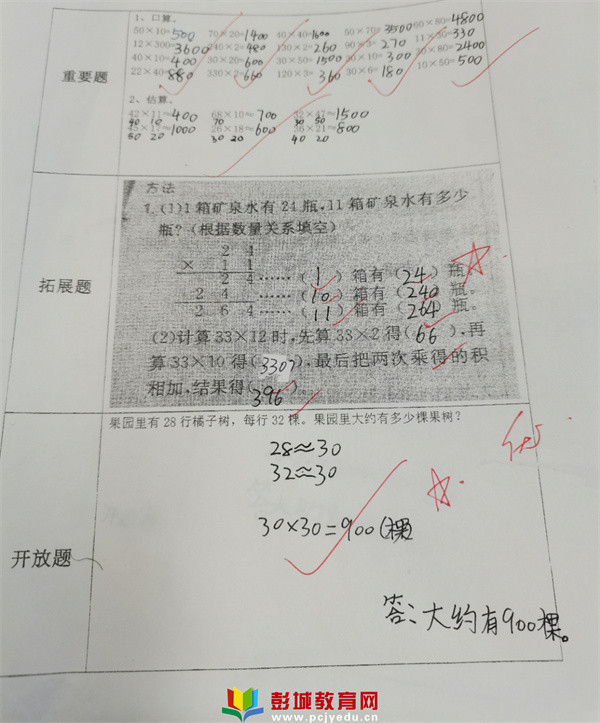 重要题
1、口算。
50×10=500 70×20=1400 40×40=1600 50×70=3500 60×80=4800
12×300=3600 240×2=480 130×2=260 90×3=270 11×30=330
40×10=400 30×20=600 30×50=1500 30×10=300 30×80=2400
22×40=880 330×2=660 120×3=360 30×6=180 10×50=500
2、估算。
42×11≈400 68×10≈700 32×47≈1500
40 10 70 30 50
45×17≈1000 26×18≈600 36×21≈800
50 20 30 20 40 20
拓展题
方法
1.(1)1箱矿泉水有24瓶,11箱矿泉水有多少
瓶?(根据数量关系填空)
2 4
× 1 1
2 4 ……(1)箱有(24)瓶。
2 4 ……(10)箱有(240)瓶。
2 6 4 ……(11)箱有(264)瓶。
(2)计算33×12时,先算33×2得(66),再
算33×10得(330),最后把两次乘得的积
相加,结果得(396)。
开放题
果园里有28行橘子树，每行32棵。果园里大约有多少棵果树？
28≈30
32≈30
30×30=900(棵)
答:大约有900棵。
彭城教育网
www.pcjyedu.cn